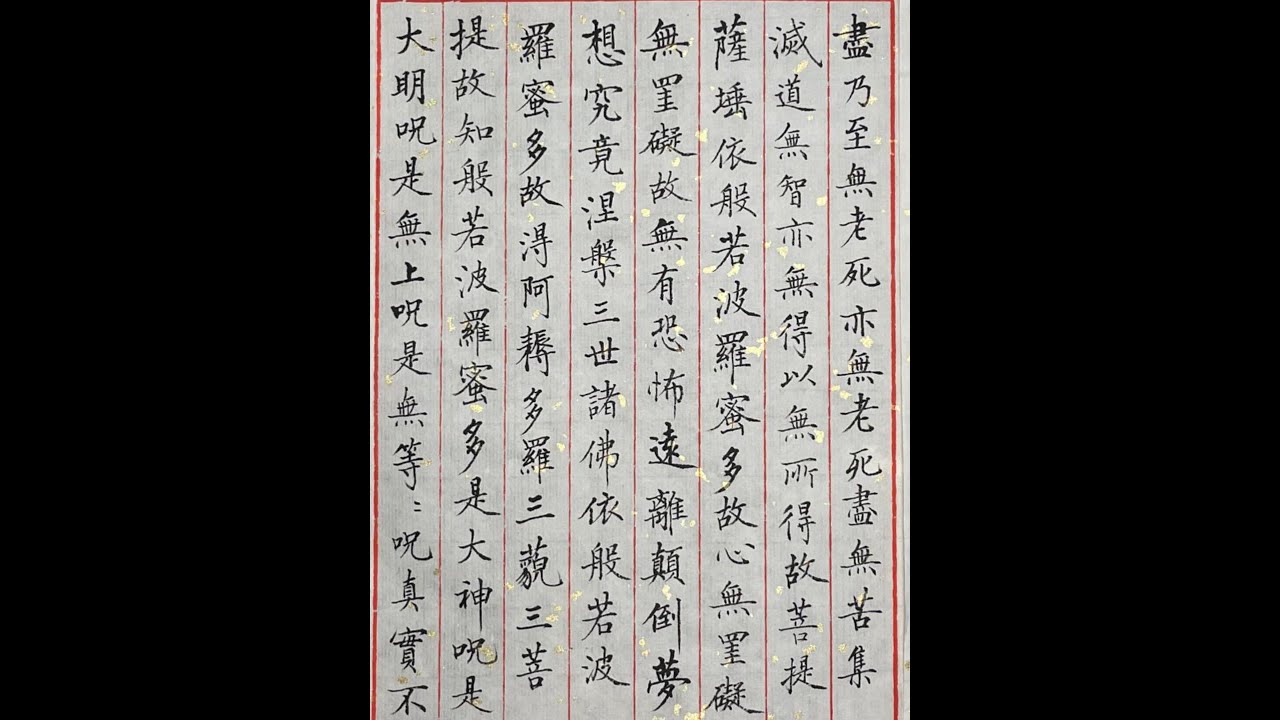 盡乃至無老死亦無老死盡無苦集
滅道無智亦無得以無所得故菩提
薩埵依般若波羅蜜多故心無罣礙
無罣礙故無有恐怖遠離顛倒夢
想究竟涅槃三世諸佛依般若波
羅蜜多故得阿耨多羅三藐三菩
提故知般若波羅蜜多是大神呪是
大明呪是無上呪是無等〻呪真實不